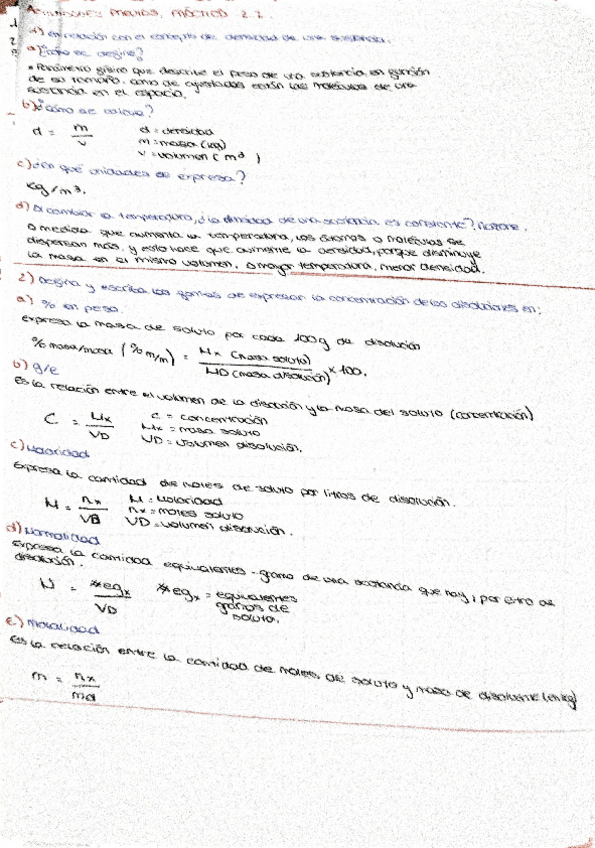 ACTIVIDADES PREVIAS, PRÁCTICO 2.2.
1) En relación con el concepto de densidad de una sustancia.
a) ¿Cómo se define?
• Parámetro físico que describe el peso de una sustancia en función
de su tamaño, como de ajustadas están las moléculas de una
sustancia en el espacio.
b) ¿Cómo se calcula?
d = m/v
d = densidad
m = masa (kg)
v = volumen (m³)
c) ¿En qué unidades se expresa?
Kg/m³.
d) Al cambiar la temperatura, ¿la densidad de una sustancia es constante? Razone.
A medida que aumenta la temperatura, los átomos o moléculas se
dispersan más, y esto hace que aumente la densidad, porque disminuye
la masa en el mismo volumen. A mayor temperatura, menor densidad.
2) Defina y escriba las formas de expresar la concentración de las disoluciones en:
a) % en peso.
expresa la masa de soluto por cada 100g de disolución
% masa/masa (% m/m) = Mx (masa soluto) / MD (masa disolución) × 100.
b) g/e
es la relación entre el volumen de la disolución y la masa del soluto (concentración)
C = Mx / VD
C = concentración
Mx = masa soluto
VD = volumen disolución.
c) Molaridad
Expresa la cantidad de moles de soluto por litros de disolución.
M = nx / VD
M = Molaridad
nx = moles soluto
VD = volumen disolución.
d) Normalidad
Expresa la cantidad equivalentes-gramo de una sustancia que hay, por litro de
disolución.
N = #egx / VD
#egx = equivalentes
gramos de
soluto.
e) Molalidad
Es la relación entre la cantidad de moles de soluto y masa de disolvente (en kg)
m = nx / md